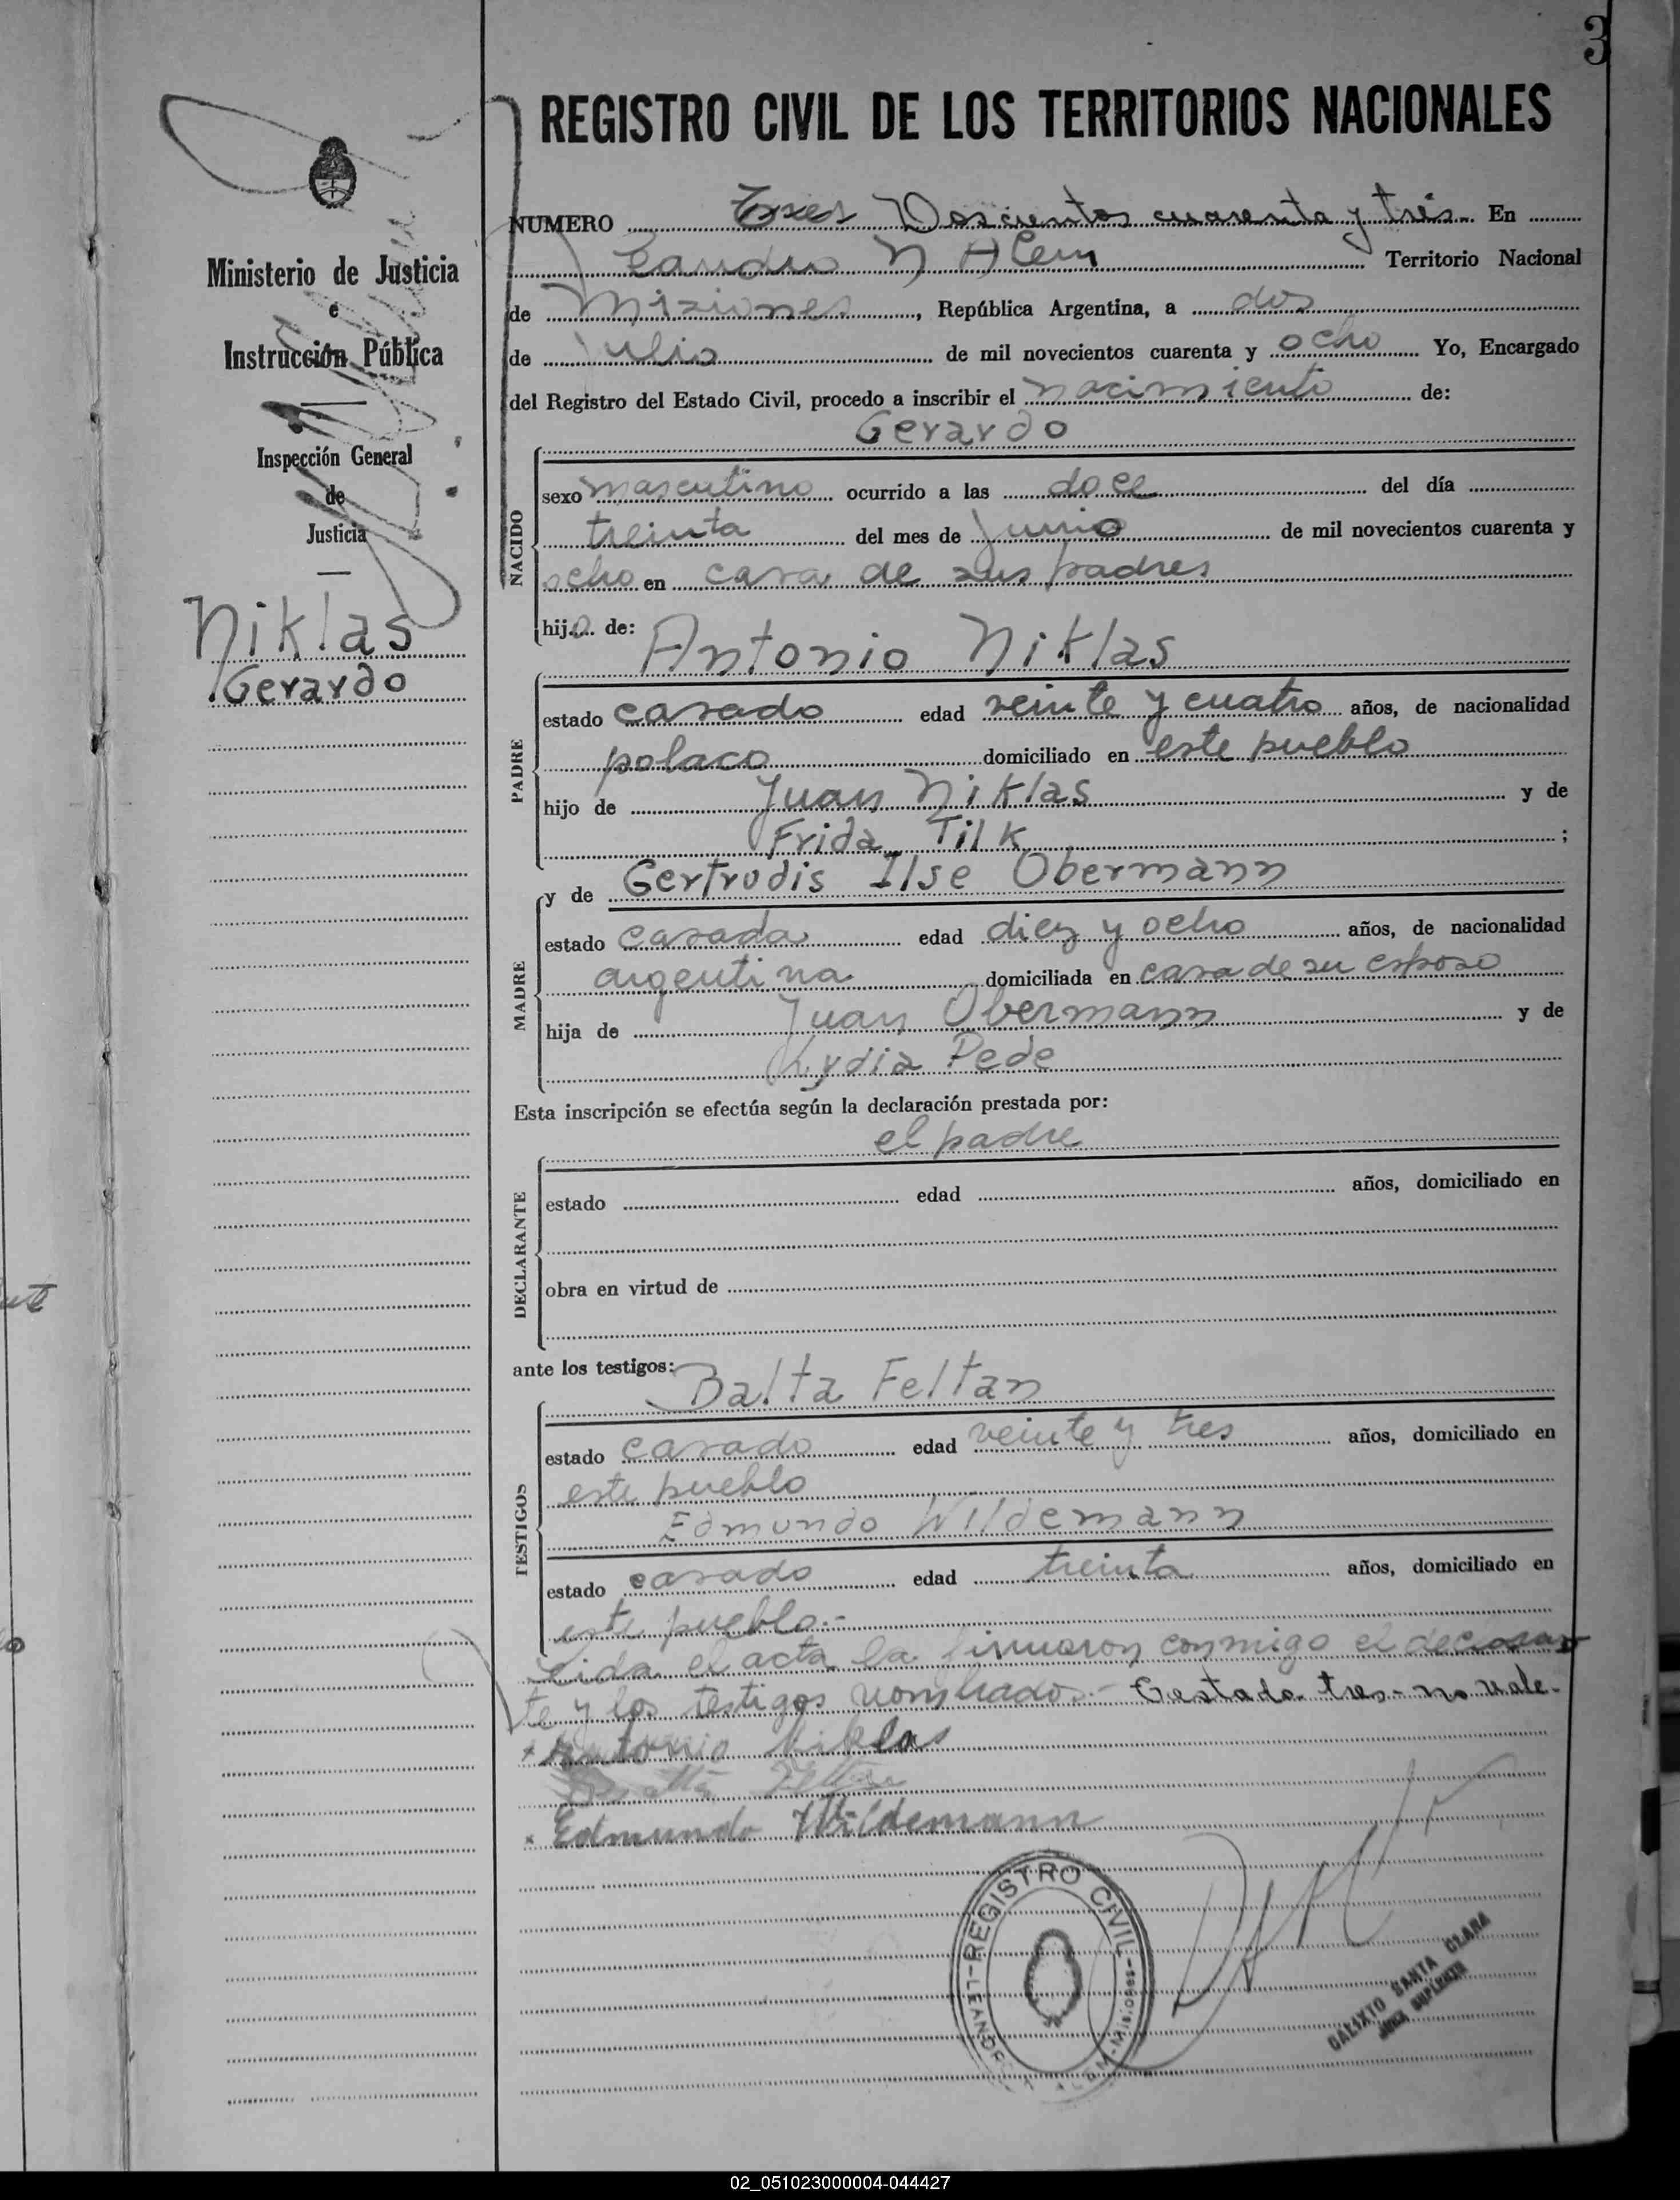 3
REGISTRO CIVIL DE LOS TERRITORIOS NACIONALES
NUMERO Tres Doscientos cuarenta y trés. En
Leandro N Alem Territorio Nacional
de Misiones, República Argentina, a dos
de julio de mil novecientos cuarenta y ocho Yo, Encargado
del Registro del Estado Civil, procedo a inscribir el nacimiento de:
Gerardo
NACIDO
sexo masculino ocurrido a las doce del día
treinta del mes de junio de mil novecientos cuarenta y
ocho en casa de sus padres
hijo de: Antonio Niklas
PADRE
estado casado edad veinte y cuatro años, de nacionalidad
polaco domiciliado en este pueblo
hijo de Juan Niklas y de
Frida Tilk ;
y de Gertrudis Ilse Obermann
MADRE
estado casada edad diez y ocho años, de nacionalidad
argentina domiciliada en casa de su esposo
hija de Juan Obermann y de
Lydia Pede
Esta inscripción se efectúa según la declaración prestada por:
el padre
DECLARANTE
estado edad años, domiciliado en
obra en virtud de
ante los testigos: Balta Feltan
TESTIGOS
estado casado edad veinte y tres años, domiciliado en
este pueblo
Edmundo Wildemann
estado casado edad treinta años, domiciliado en
este pueblo.-
Lida el acta la firmaron conmigo el declaran
te y los testigos nombrados.- Testado tres- no vale.
Antonio Niklas
Edmundo Wildemann
REGISTRO CIVIL
LEANDRO N. ALEM-Misiones
CALIXTO SANTA CLARA
JUEZ SUPLENTE
Ministerio de Justicia
e
Instrucción Pública
Inspección General
de
Justicia
Niklas
Gerardo
02_051023000004-044427